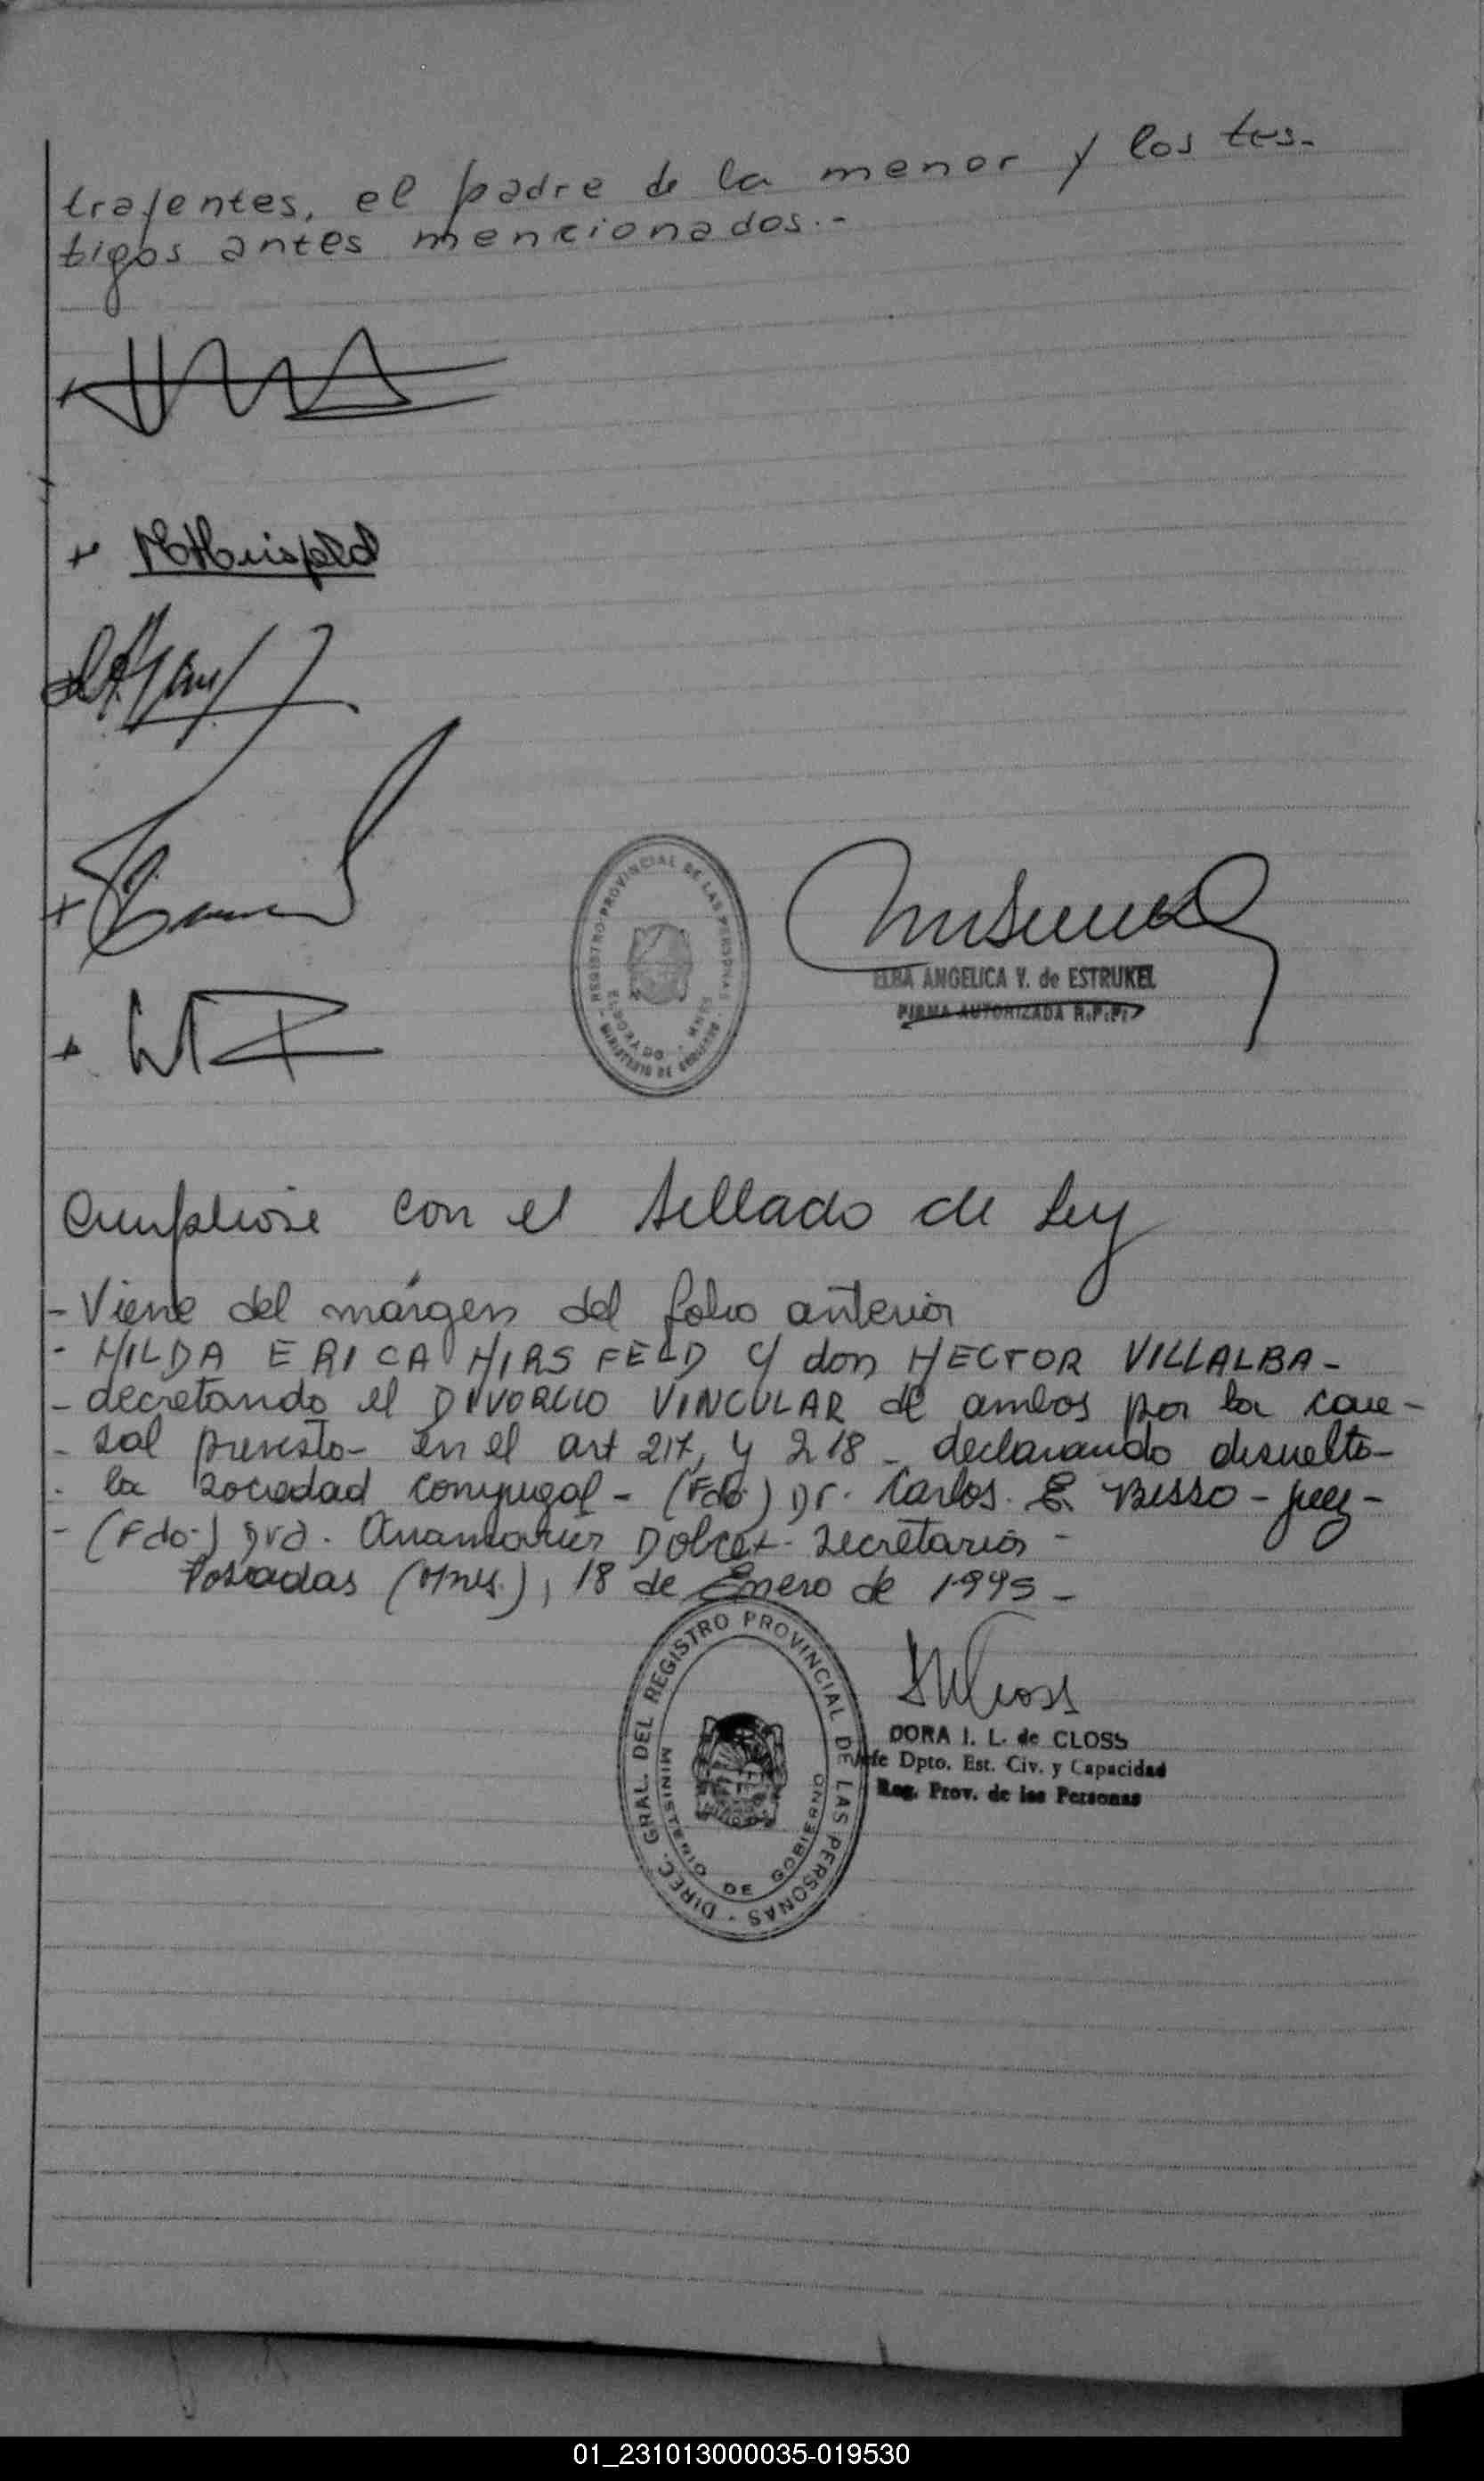 trajentes, el padre de la menor y los tes-
tigos antes mencionados.-
REGISTRO PROVINCIAL DE LAS PERSONAS
ELDORADO - MNES
MINISTERIO DE GOBIERNO
ELBA ANGELICA Y. de ESTRUKEL
FIRMA AUTORIZADA R.P.P.
Cumpliose con el sellado de Ley
- Viene del márgen del folio anterior
- HILDA ERICA HIRSFELD y don HECTOR VILLALBA -
- decretando el DIVORCIO VINCULAR de ambos por la cau-
- sal previsto - en el art 217, y 218 - declarando disuelto -
- la sociedad conyugal - (Fdo) Dr. Carlos. E. Bisso - juez -
- (Fdo-) Dra. Anamaría Dolcet - Secretaria -
Posadas (Mnes.), 18 de Enero de 1995 -
DIREC. GRAL. DEL REGISTRO PROVINCIAL DE LAS PERSONAS -
MINISTERIO DE GOBIERNO
DORA I. L. de CLOSS
Jefe Dpto. Est. Civ. y Capacidad
Reg. Prov. de las Personas
01_231013000035-019530